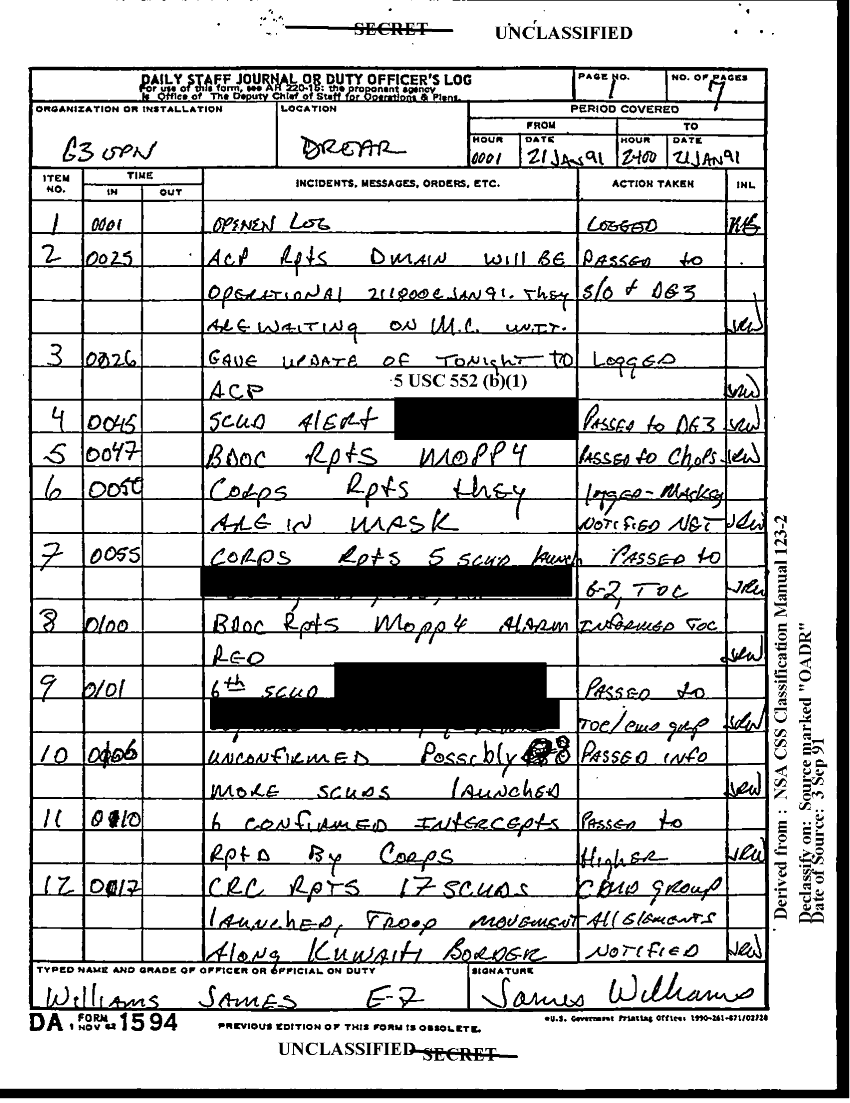 SECRET UNCLASSIFIED
DAILY STAFF JOURNAL OR DUTY OFFICER'S LOG
For use of this form, see AR 220-15: the proponent agency
is Office of The Deputy Chief of Staff for Operations & Plans.
PAGE NO.
1
NO. OF PAGES
7
ORGANIZATION OR INSTALLATION
G3 OPN
LOCATION
DREAR
PERIOD COVERED
FROM TO
HOUR DATE HOUR DATE
0001 21 JAN 91 2400 21 JAN 91
ITEM NO. TIME IN OUT INCIDENTS, MESSAGES, ORDERS, ETC. ACTION TAKEN INL
1 0001 OPENEN LOG LOGGED
2 0025 ACP Rpts DMAIN WILL BE PASSED to
OPERATIONAL 211800C JAN 91. They S/O & DG3
ARE WAITING ON M.C. UNIT. JRW
3 0026 GAVE UPDATE OF TONIGHT TO LOGGED
ACP 5 USC 552 (b)(1) JRW
4 0045 SCUD ALERT PASSED to DG3 JRW
5 0047 BDOC Rpts MOPP4 PASSED to ChOPS JRW
6 0050 CORPS Rpts they logged-
ARE IN MASK NOTIFIED NET JRW
7 0055 CORPS Rpts 5 SCUD launch PASSED to
G-2, TOC JRW
8 0100 BDOC Rpts Mopp4 AlARM INFORMED TOC
RED JRW
9 0101 6th SCUD PASSED to
TOC/cmd grp JRW
10 0106 UNCONFIRMED Possebly 8 PASSED INFO
MORE SCUDS lAUNCHED JRW
11 0110 6 CONFIRMED INTERCEPTS PASSED to
RptD By CORPS HigHER JRW
12 0017 CRC RPTS 17 SCUDS CMD group
lAUNCHED, TROOP MOVEMENT All ElEMENTS
Along KUWAITI BORDER NOTIFIED JRW
TYPED NAME AND GRADE OF OFFICER OR OFFICIAL ON DUTY
Williams JAMES E-7
SIGNATURE
James Williams
DA FORM 1 NOV 62 1594
PREVIOUS EDITION OF THIS FORM IS OBSOLETE.
*U.S. Government Printing Office: 1990-261-871/02728
UNCLASSIFIED SECRET
Derived from : NSA CSS Classification Manual 123-2
Declassify on: Source marked "OADR"
Date of Source: 3 Sep 91